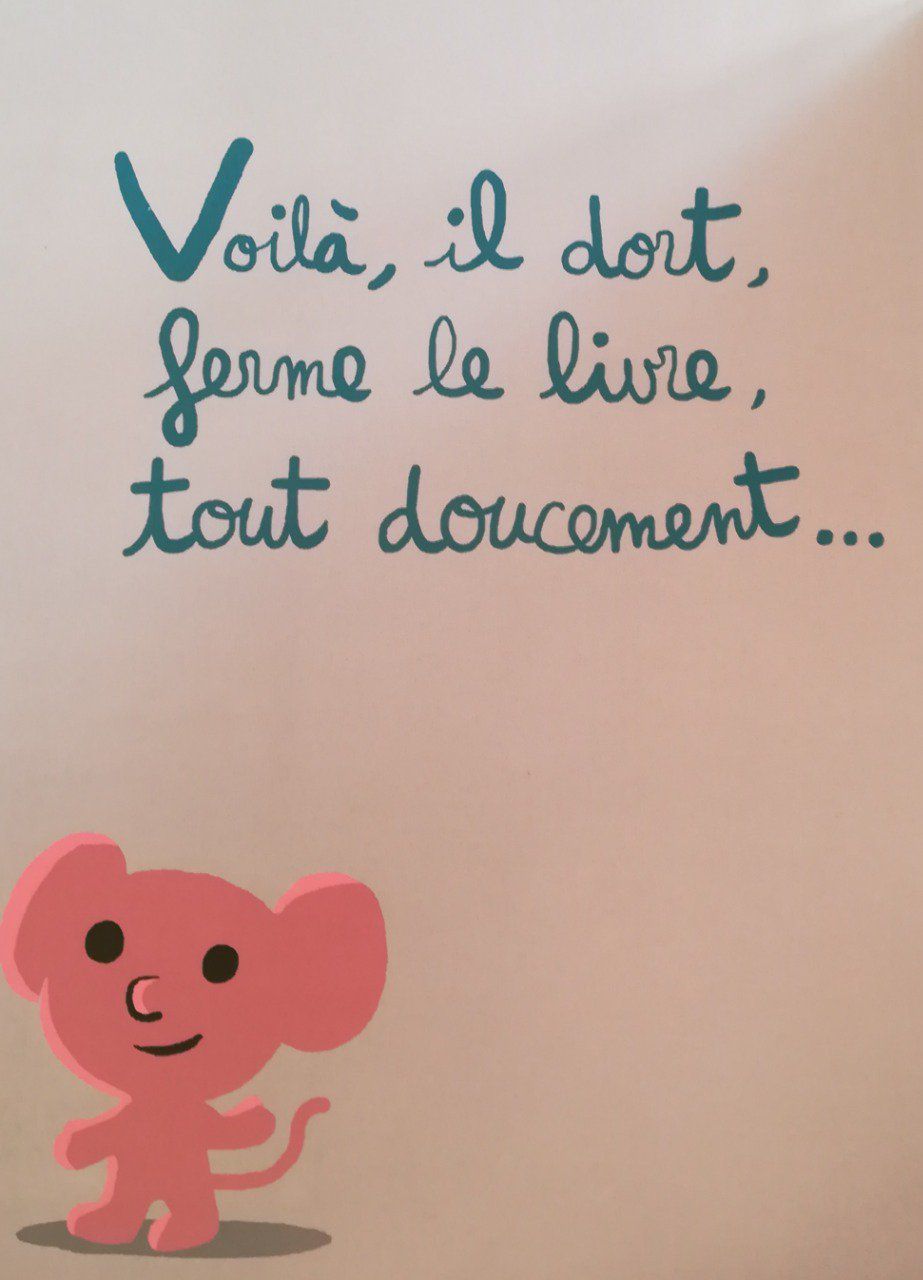 Voilà, il dort,
ferme le livre,
tout doucement...